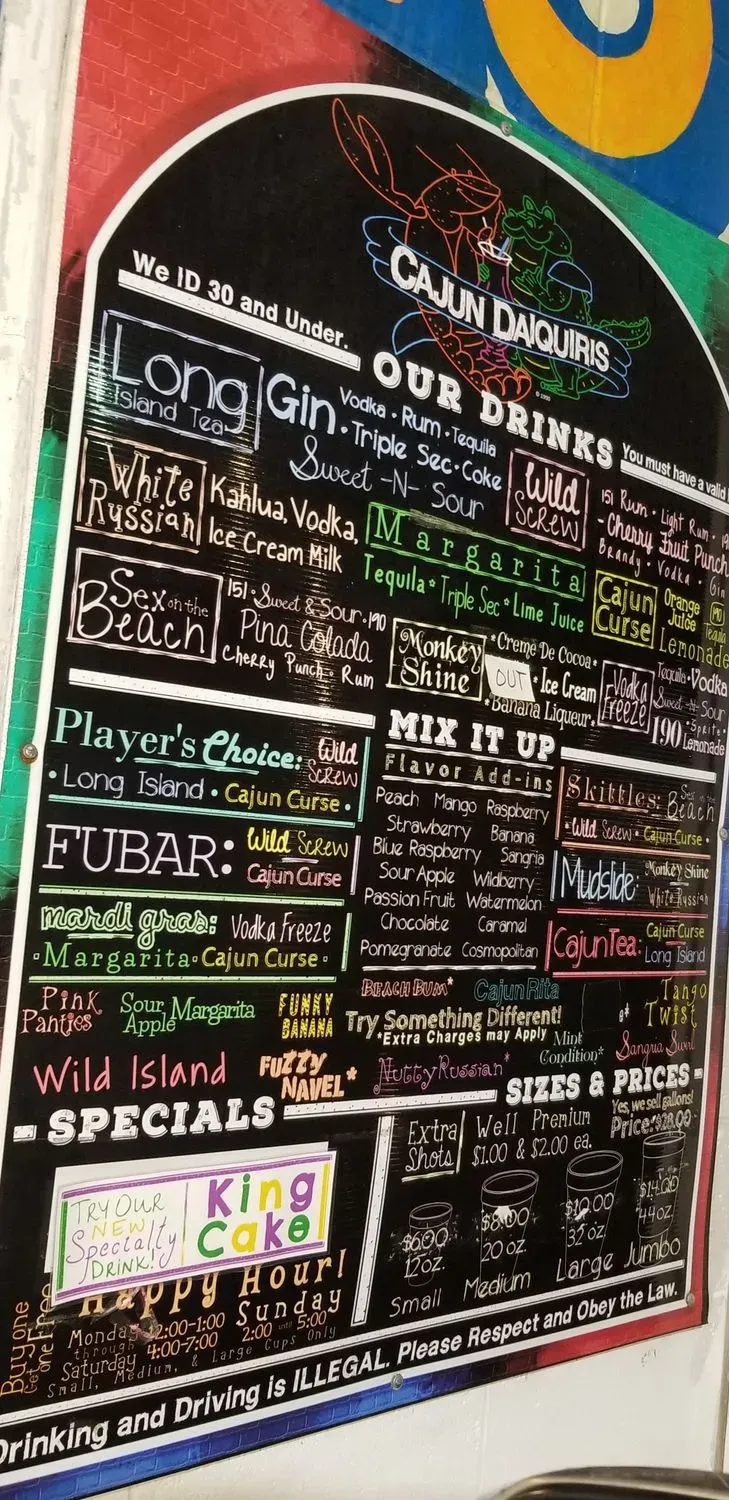 CAJUN DAIQUIRIS
© 1990
We ID 30 and Under.
OUR DRINKS
You must have a valid
Long
Island Tea
Gin
Vodka • Rum • Tequila
• Triple Sec • Coke
Sweet -N- Sour
Wild
Screw
151 Rum • Light Rum •
- Cherry Fruit Punch
Brandy • Vodka • Gin
White
Russian
Kahlua, Vodka,
Ice Cream Milk
Margarita
Tequila * Triple Sec * Lime Juice
Cajun
Curse
Orange
Juice
190
Tequila
Lemonade
Sex on the
Beach
151 • Sweet & Sour • 190
Pina Colada
Cherry Punch • Rum
Monkey
Shine
*Creme De Cocoa*
OUT
* Ice Cream
*Banana Liqueur*
Vodka
Freeze
Tequila • Vodka
Sweet -N- Sour
190
• Sprite •
Lemonade
Player's Choice:
Wild
Screw
• Long Island • Cajun Curse •
FUBAR:
Wild Screw
Cajun Curse
mardi gras:
Vodka Freeze
Margarita
Cajun Curse
MIX IT UP
Flavor Add-ins
Peach Mango Raspberry
Strawberry Banana
Blue Raspberry Sangria
Sour Apple Wildberry
Passion Fruit Watermelon
Chocolate Caramel
Pomegranate Cosmopolitan
Skittles:
Sex on the
Beach
• Wild Screw • Cajun Curse •
Mudslide:
Monkey Shine
White Russian
CajunTea:
Cajun Curse
Long Island
Pink
Panties
Sour
Apple
Margarita
FUNKY
BANANA
BEACH BUM*
CajunRita
Try Something Different!
*Extra Charges may Apply
Tango
Twist
Mint
Condition*
Sangria Swirl
Wild Island
FUZZY
NAVEL*
Nutty Russian*
- SPECIALS
TRY OUR
NEW
Specialty
DRINK!
King
Cake
Happy Hour!
Buy one
Get one Free
Monday 12:00-1:00
through 4:00-7:00
Saturday
Sunday
2:00 until 5:00
Small, Medium, & Large Cups Only
SIZES & PRICES -
Extra
Shots
Well Premium
$1.00 & $2.00 ea.
Yes, we sell gallons!
Price: $28.00
$6.00
12oz.
Small
$8.00
20 oz.
Medium
$10.00
32 oz.
Large
$14.00
44oz.
Jumbo
Drinking and Driving is ILLEGAL. Please Respect and Obey the Law.